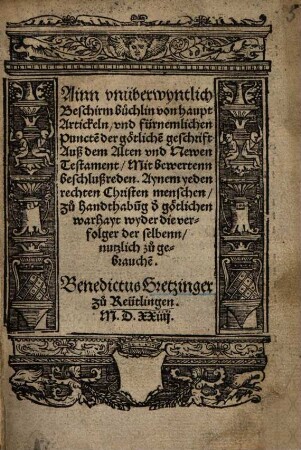 Ainn vnüberwyntlich
Beschirm büchlin von haupt
Artickeln/ vnd fürnemlichen
Punctē der götlichē geschrift
Auß dem Alten vnd Newen
Testament/ Mit bewertenn
beschlußreden. Aynem yeden
rechten Christen menschen/
zů handthabūg d̄ götlichen
warhayt wyder die ver-
folger der selbenn/
nutzlich zů ge-
brauchē.
Benedictus Gretzinger
zů Reütlingen.
M. D. XXiiij.